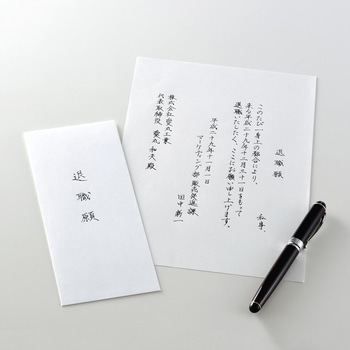 退職願
私事、
このたび一身上の都合により、
来る平成二十九年十二月三十一日をもって
退職いたしたく、ここにお願い申し上げます。
平成二十九年十一月一日
マーケティング部 販売促進課
田中 新一
株式会社愛丸工業
代表取締役 愛丸 歩夫殿
退職願